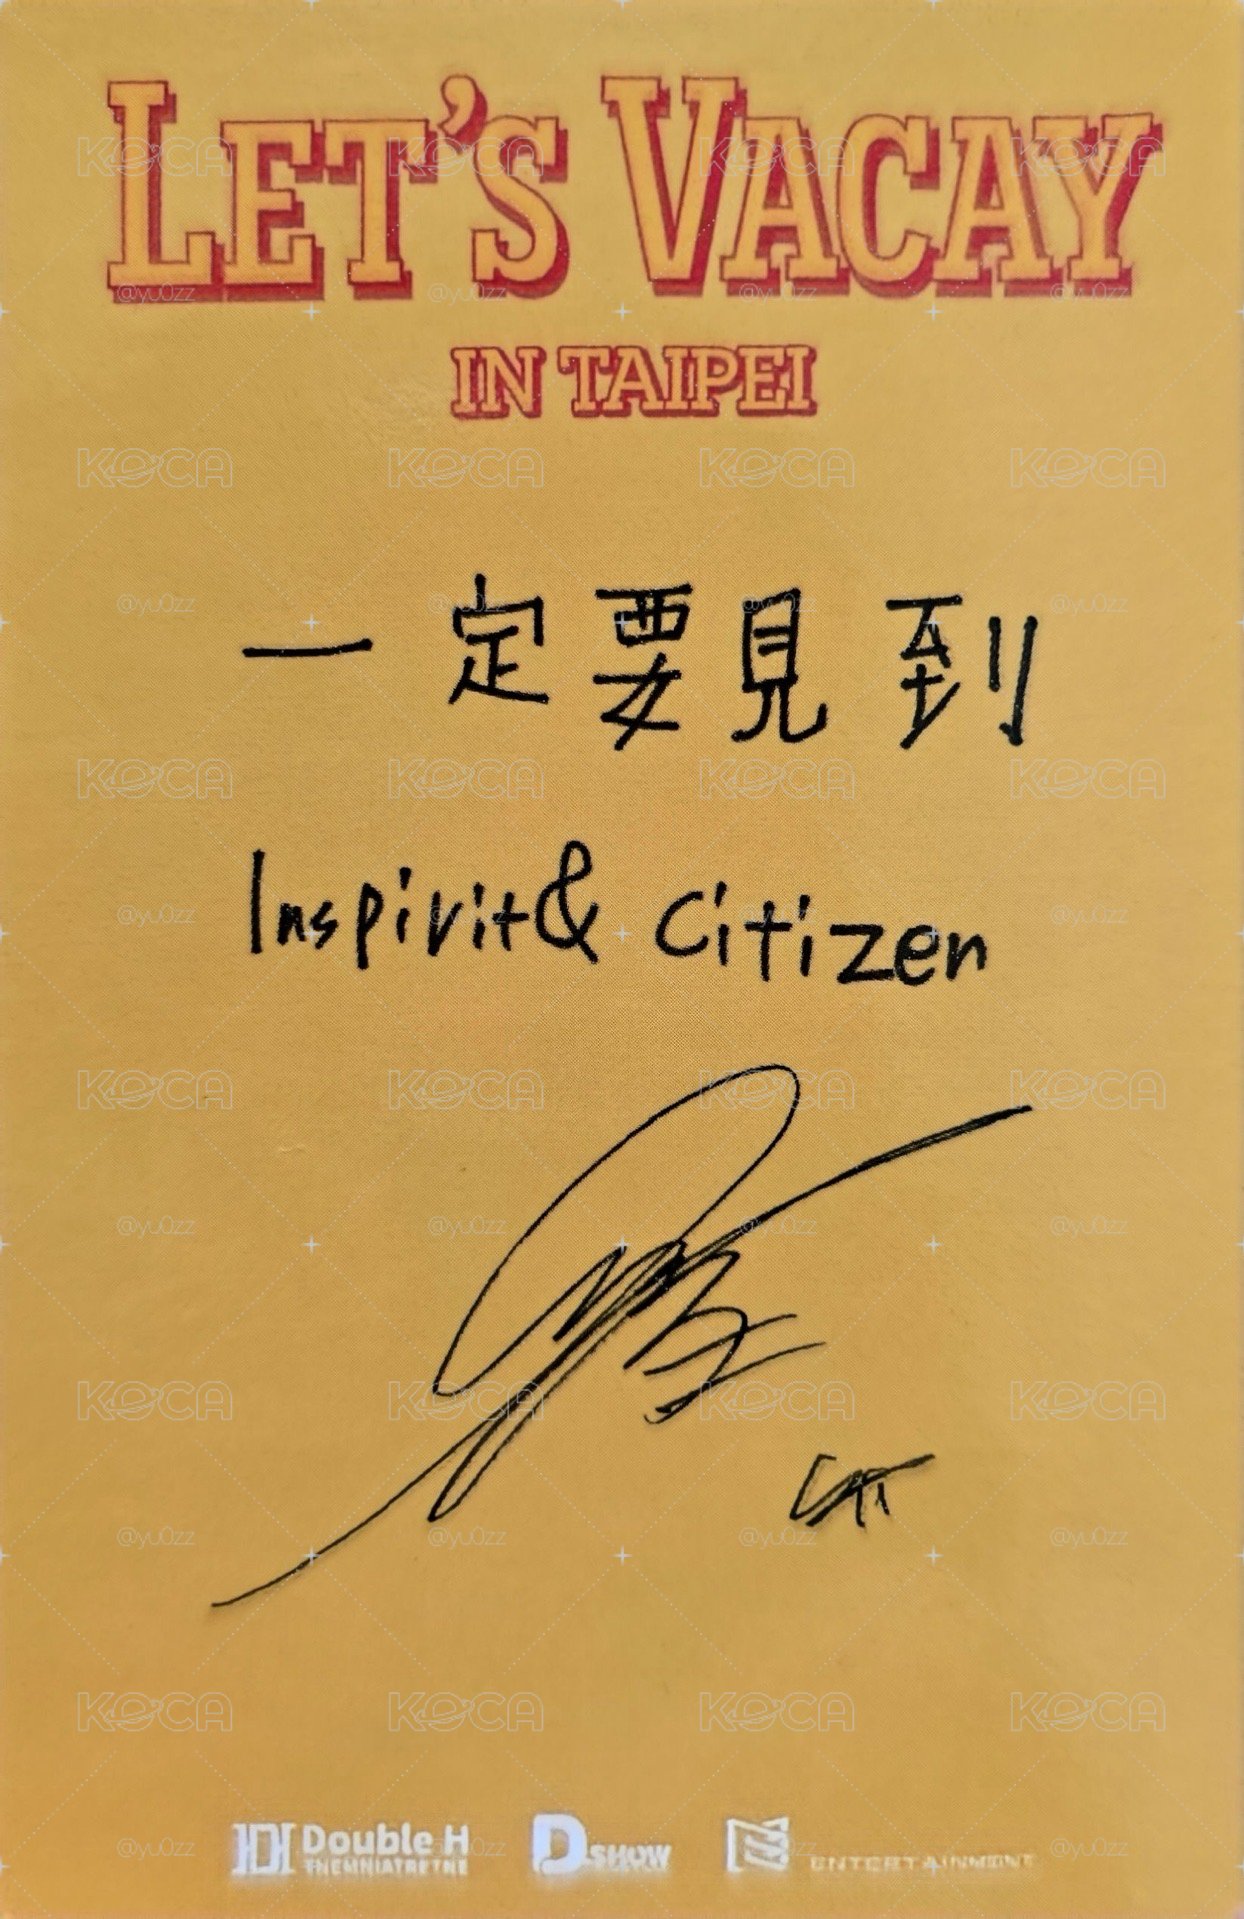 LET'S VACAY
IN TAIPEI
一定要見到
Inspirit& Citizen
Double H
D SHOW
ENTERTAINMENT
KOCA
@yu0zz